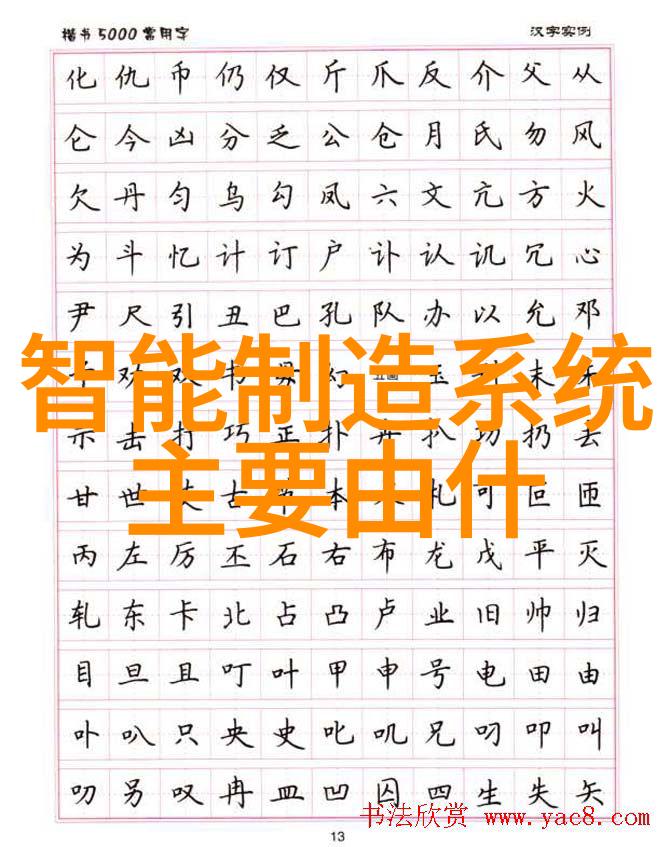 楷书5000常用字 汉字实例
化仇币仍仅斤爪反介父从
仑今凶分乏公仓月氏勿风
欠丹匀乌勾凤六文亢方火
为斗忆计订户讣认讥冗心
尹尺引丑巴孔队办以允邓
劝双书毋幻五画玉末
智能制造系统
示击打巧正扑扒功扔去
甘世古本札可叵匝
主要由什
丙左厉丕石右布龙戊平灭
轧东卡北占凸卢业旧帅归
目旦且叮叶甲申号电田由
卟叭只央史叱叽兄叼叩叫
叻另叹冉皿凹囚四生失矢
书法欣赏 www.yac8.com
13